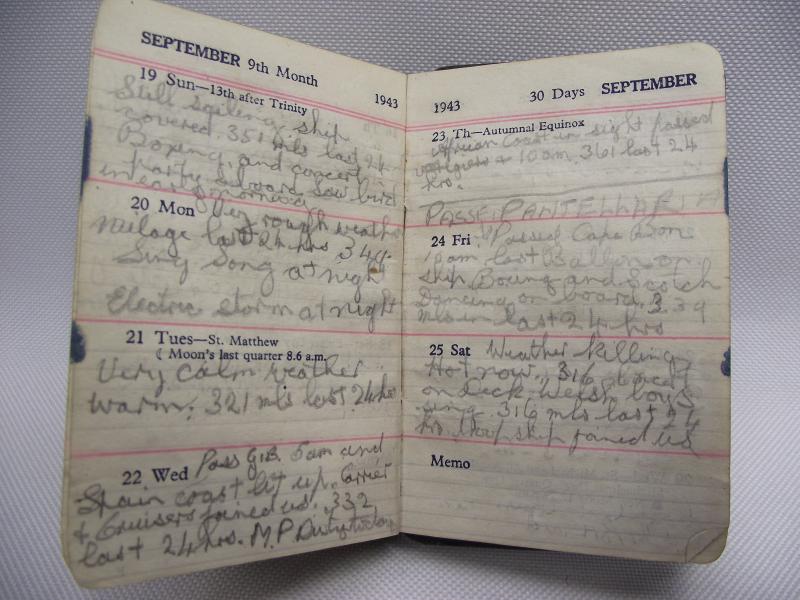 SEPTEMBER 9th Month
19 Sun—13th after Trinity 1943
Still Sailing ship
covered 351 mls last 24
Boxing, and concert
party aboard saw bird
in early morning
20 Mon Very rough weather
Milage last 24 hrs 344.
Sing Song at night
Electric storm at night
21 Tues—St. Matthew
☾ Moon's last quarter 8.6 a.m.
Very calm weather
warm. 321 mls last 24 hrs
22 Wed Pass GIB 5am and
Spain coast lit up. Carrier
& Cruisers joined us. 332
last 24 hrs. M.P Duty today
1943 30 Days SEPTEMBER
23 Th—Autumnal Equinox
African coast in sight passed
10 am. 361 last 24
hrs.
PASSE. PANTELLARIA
24 Fri Passed Cape Bone
pm last Ballon on
ship. Boxing and Scotch
Dancing on board. 339
mls in last 24 hrs
25 Sat Weather killing
Hot now. 316
on Deck. Welsh boys
sing. 316 mls last 24
hrs. troop ship joined us
Memo